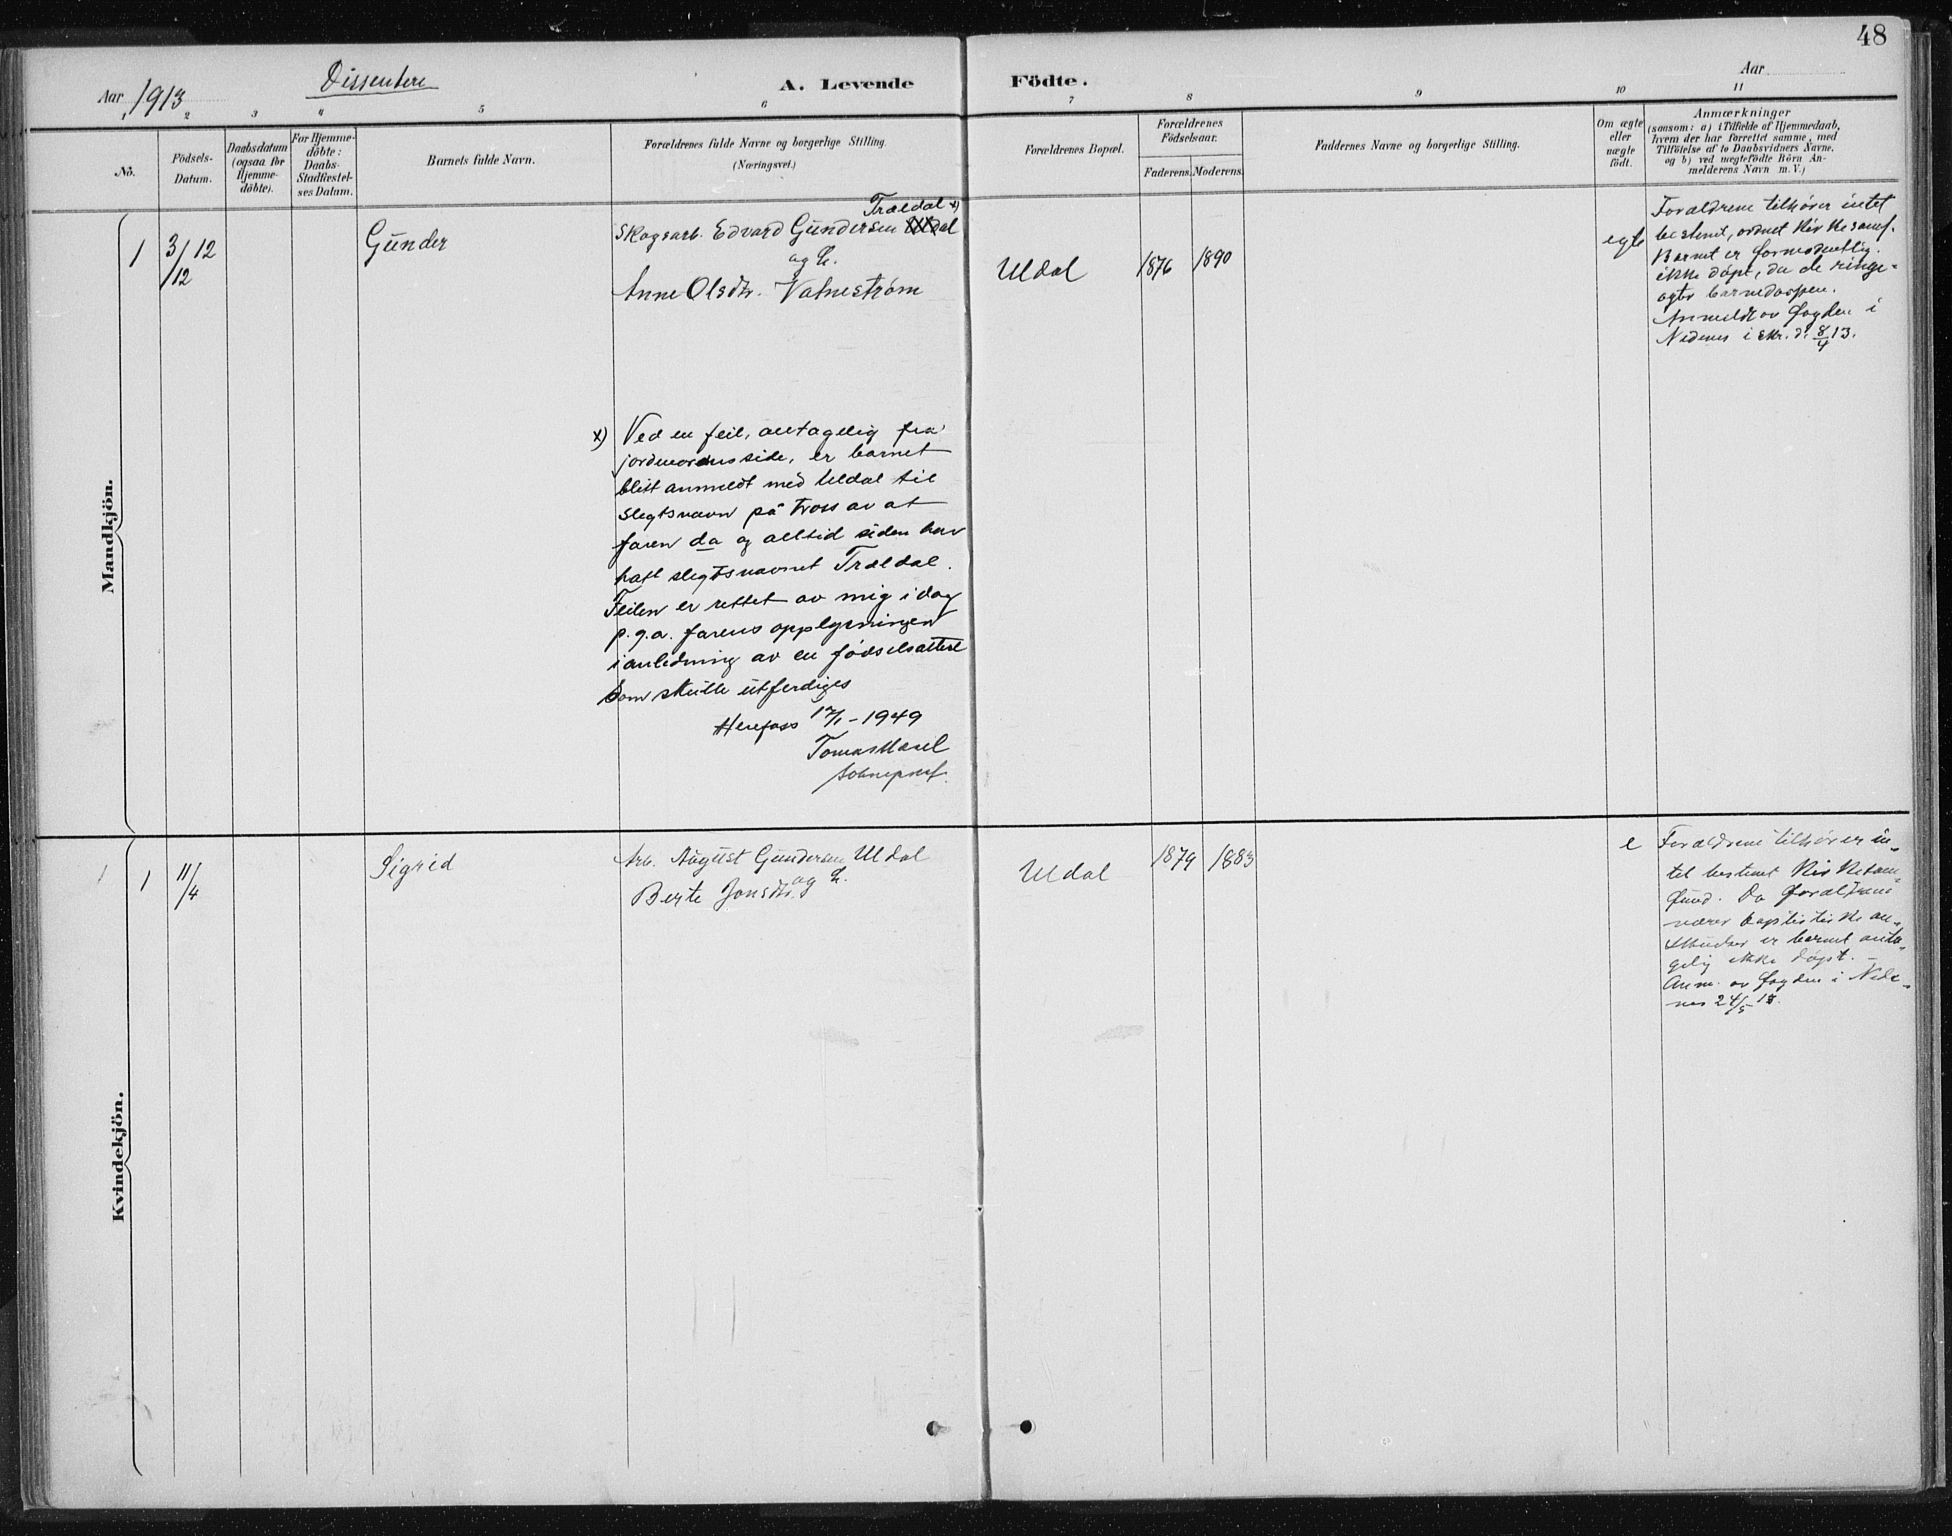 48
Aar 1913
Dissentere
A. Levende
Födte.
Aar
1 2 3 4 5 6 7 8 9 10 11
No.
Födsels-
Datum.
Daabsdatum
(ogsaa for
Hjemme-
döbte).
For Hjemme-
döbte:
Daabs-
Stadfæstel-
ses Datum.
Barnets fulde Navn.
Forældrenes fulde Navne og borgerlige Stilling.
(Næringsvei.)
Forældrenes Bopæl.
Forældrenes
Födselsaar.
Faderens. Moderens.
Faddernes Navne og borgerlige Stilling.
Om ægte
eller
uægte
födt.
Anmærkninger
(saasom: a) i Tilfælde af Hjemmedaab,
hvem der har forrettet samme, med
Tilföielse af to Daabsvidners Navne,
og b) ved uægtefödte Börn An-
melderens Navn m. V.)
Mandkjön.
1
3/12 12
Gunder
Trældal x)
Skogsarb. Edvard Gundersen Uldal
og h.
Anne Olsdtr. Vatnestrøm
Uldal
1876
1890
egte
Forældrene tilhører intet
bestemt, ordnet kirkesamf.
Barnet er formodentlig
ikke døpt, da de ringe-
agter barnedaapen.
Anmeldt av fogden i
Nedenes i skr. d. 8/4 13.
x) Ved en feil, antagelig fra
jordmorens side, er barnet
blitt anmeldt med Uldal til
slegtsnavn på tross av at
faren da og alltid siden har
hatt slegtsnavnet Trældal.
Feilen er rettet av mig idag
p.g.a. farens opplysninger
i anledning av en fødselsattest
som skulle utferdiges
Herefoss 17/1-1949
Tomas
sokneprest.
Kvindekjön.
1
1
11/4
Sigrid
Arb. August Gundersen Uldal
og h.
Berte Jonsdtr.
Uldal
1879
1883
e
Forældrene tilhører in-
tet bestemt kirkesam-
fund. Da forældrene
nærer baptistiske an-
skuelser er barnet anta-
gelig ikke døpt. -
Anm. av fogden i Nede-
nes 24/5 13.